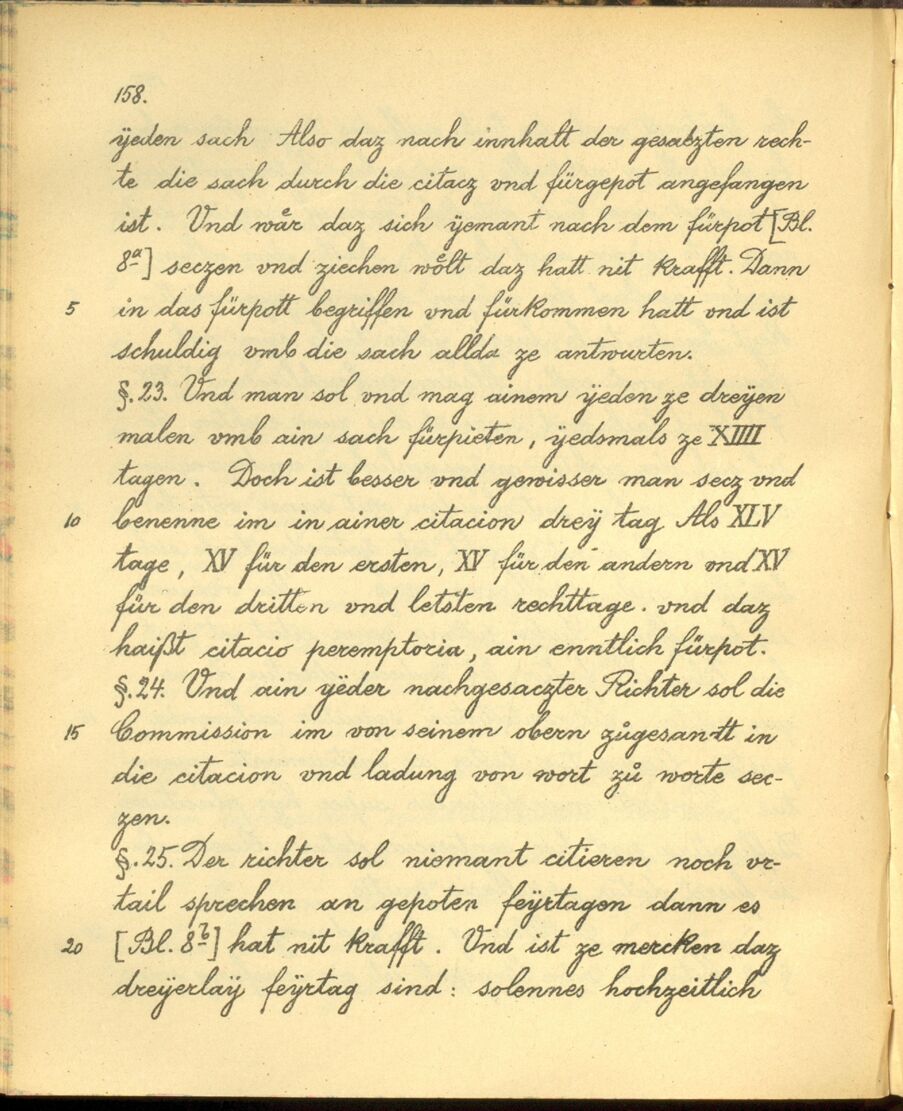 158.
ÿeden sach Also daz nach innhalt der gesatzten rech-
te die sach durch die citacz vnd fürgepot angefangen
ist. Vnd wår daz sich ÿemant nach dem fürpot [Bl.
8a] seczen vnd ziechen wo̊lt daz hatt nit krafft. Dann
5 in das fürpott begriffen vnd fürkommen hatt vnd ist
schuldig vmb die sach allda ze antwurten.
§. 23. Vnd man sol vnd mag ainem ÿeden ze dreÿen
malen vmb ain sach fürpieten, ÿedsmals ze XIIII
tagen. Doch ist besser vnd gewisser man secz vnd
10 benenne im in ainer citacion dreÿ tag Als XLV
tage, XV für den ersten, XV für den andern vnd XV
für den dritten vnd letsten rechttage. vnd daz
haißt citacio peremptoria, ain enntlich fürpot.
§. 24. Vnd ain ÿeder nachgesaczter Richter sol die
15 Commission im von seinem obern zůgesantt in
die citacion vnd ladung von wort zů worte sec-
zen.
§. 25. Der richter sol niemant citieren noch vr-
tail sprechen an gepoten feÿrtagen dann es
20 [Bl. 8b] hat nit krafft. Vnd ist ze mercken daz
dreÿerlaÿ feÿrtag sind: solennes hochzeitlich